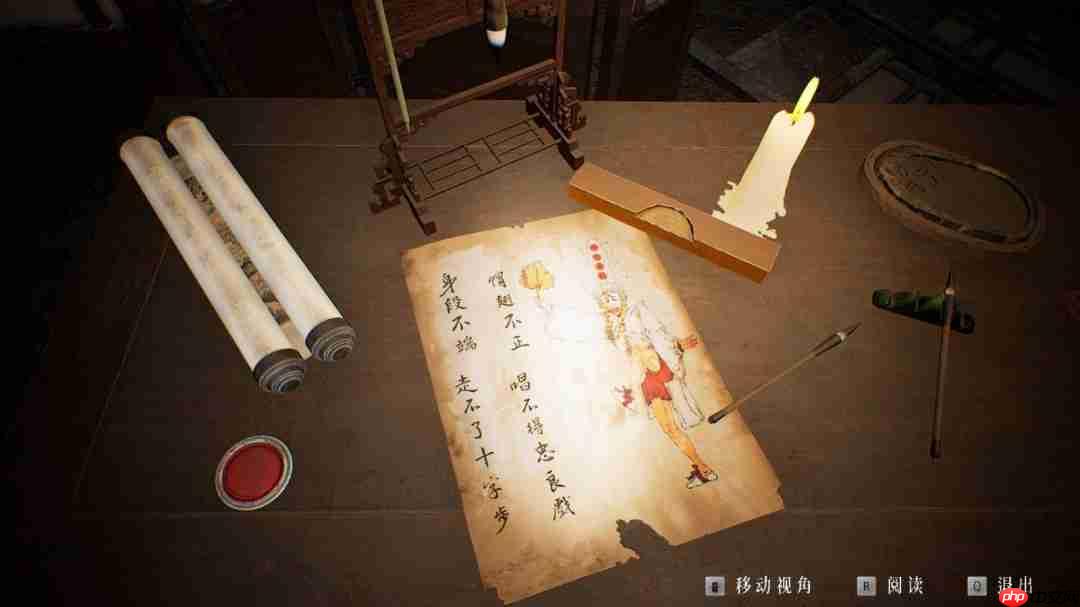 帽翅不正 唱不得忠良戲
身段不端 走不了十字步
移动视角
R 阅读
Q 退出
php